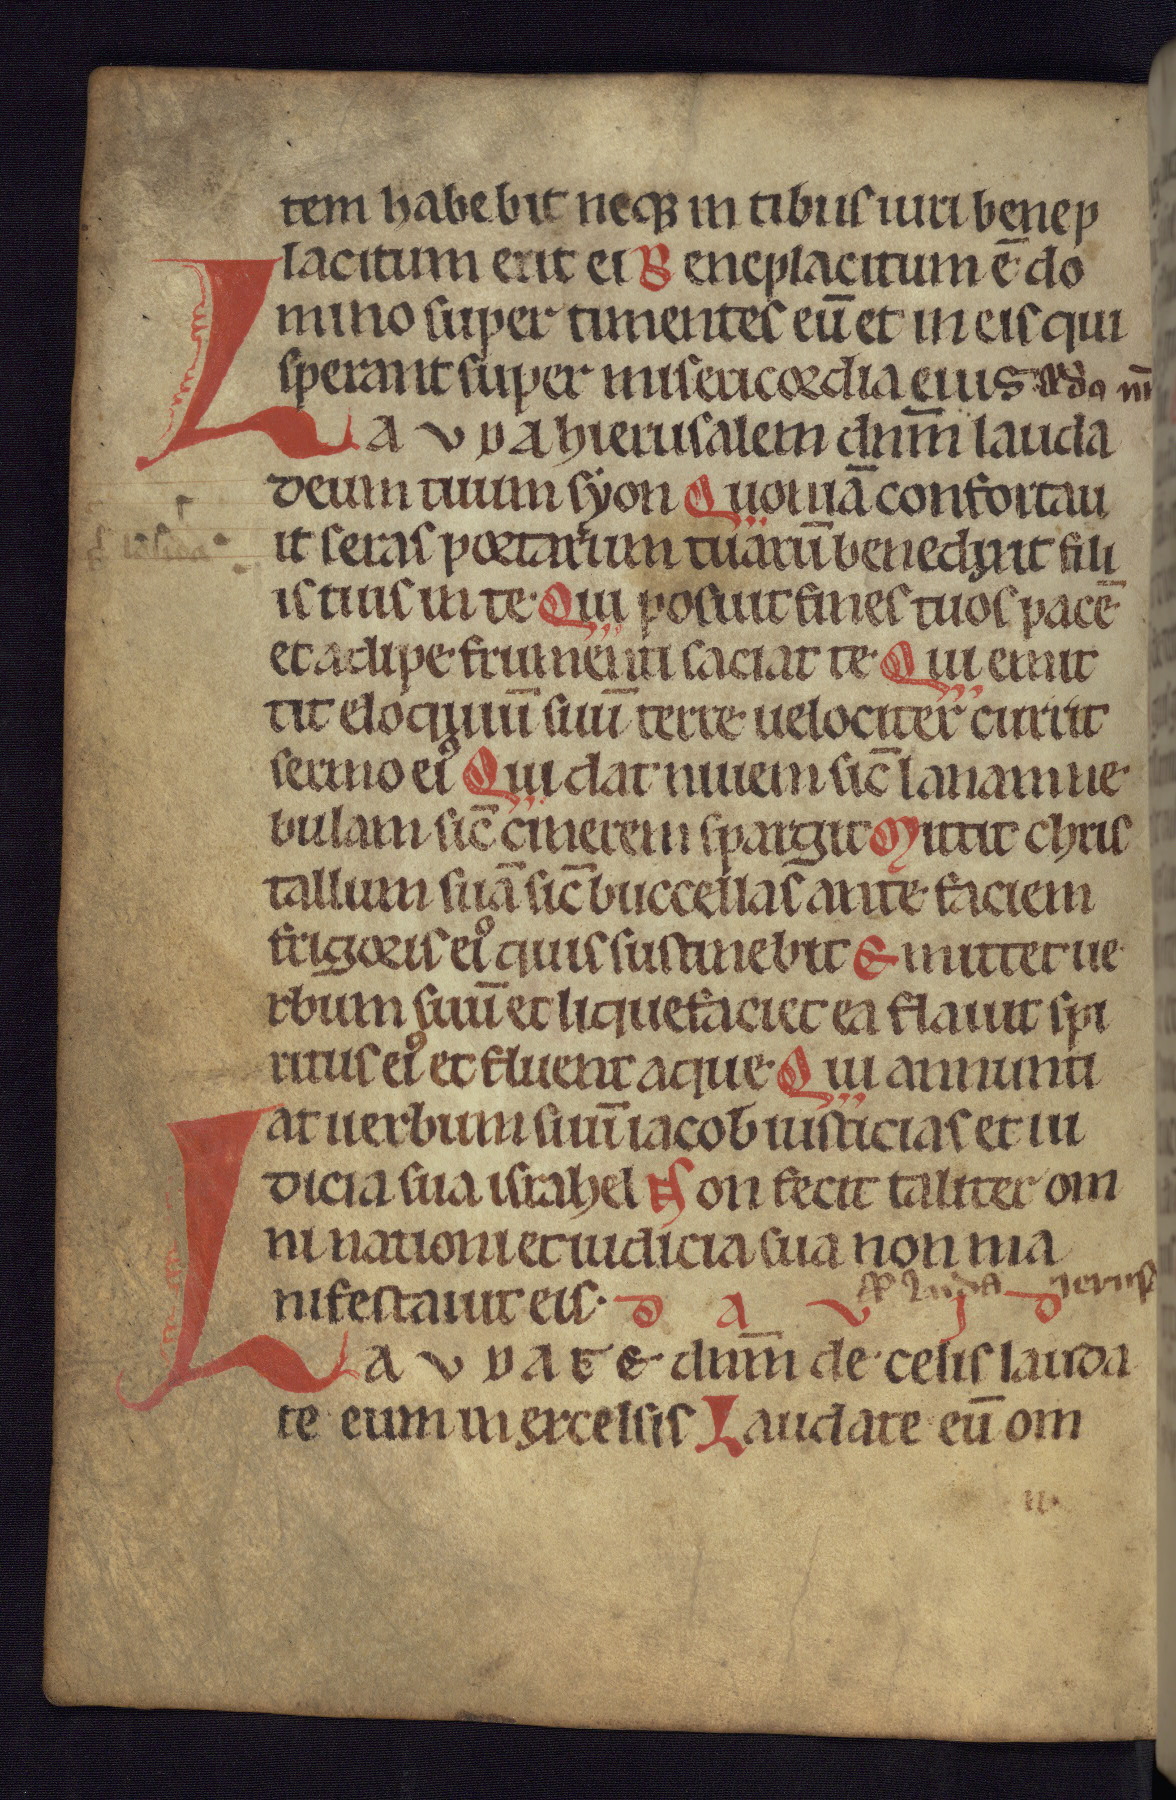 tem habebit neqꝫ in tibiis uiri benep
lacitum erit ei Beneplacitum ē do
mino super timentes eū et in eis qui
sperant super misericordia eius
LAVDA hierusalem dn̄m lauda
deum tuum syon Quoniā confortau
it seras portarum tuarū benedixit fili
is tuis in te· Qui posuit fines tuos pacē
et adipe frumenti saciat te· Qui emit
tit eloquiū suū terre uelociter currit
sermo eiꝰ Qui dat niuem sic̄ lanam ne
bulam sic̄ cinerem spargit Mittit chris
tallum suā sic̄ buccellas ante faciem
frigoris eiꝰ quis sustinebit Emittet ue
rbum suū et liquefaciet ea flauit spi
ritus eiꝰ et fluent aque· Qui annunti
at uerbum suū iacob iusticias et iu
dicia sua israhel Non fecit taliter om
ni nationi et iudicia sua non ma
nifestauit eis· D A V I D
LAVDATE dn̄m de celis lauda
te eum in excelsis Laudate eū om